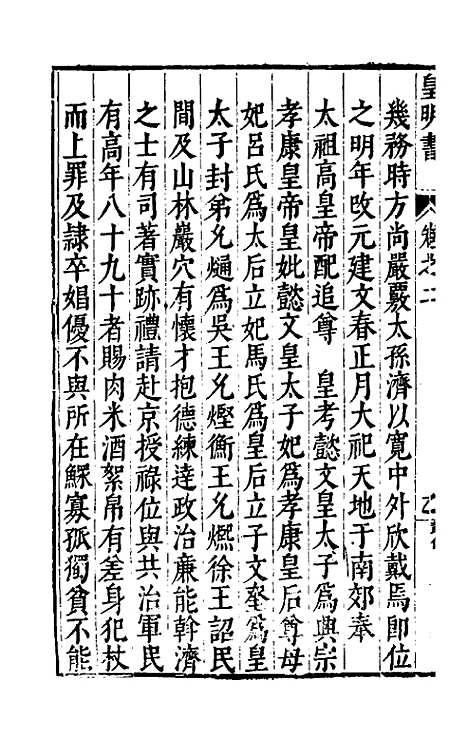 皇明書
卷之二
幾務時方尚嚴覈太孫濟以寬中外欣戴焉即位
之明年改元建文春正月大祀天地于南郊奉
太祖高皇帝配追尊 皇考懿文皇太子爲興宗
孝康皇帝皇妣懿文皇太子妃爲孝康皇后尊母
妃呂氏爲太后立妃馬氏爲皇后立子文奎爲皇
太子封弟允熥爲吳王允熞衡王允㷩徐王詔民
間及山林巖穴有懷才抱德練達政治廉能幹濟
之士有司著實跡禮請赴京授祿位與共治軍民
有高年八十九十者賜肉米酒絮帛有差身犯杖
而上罪及隷卒娼優不與所在鰥寡孤獨貧不能